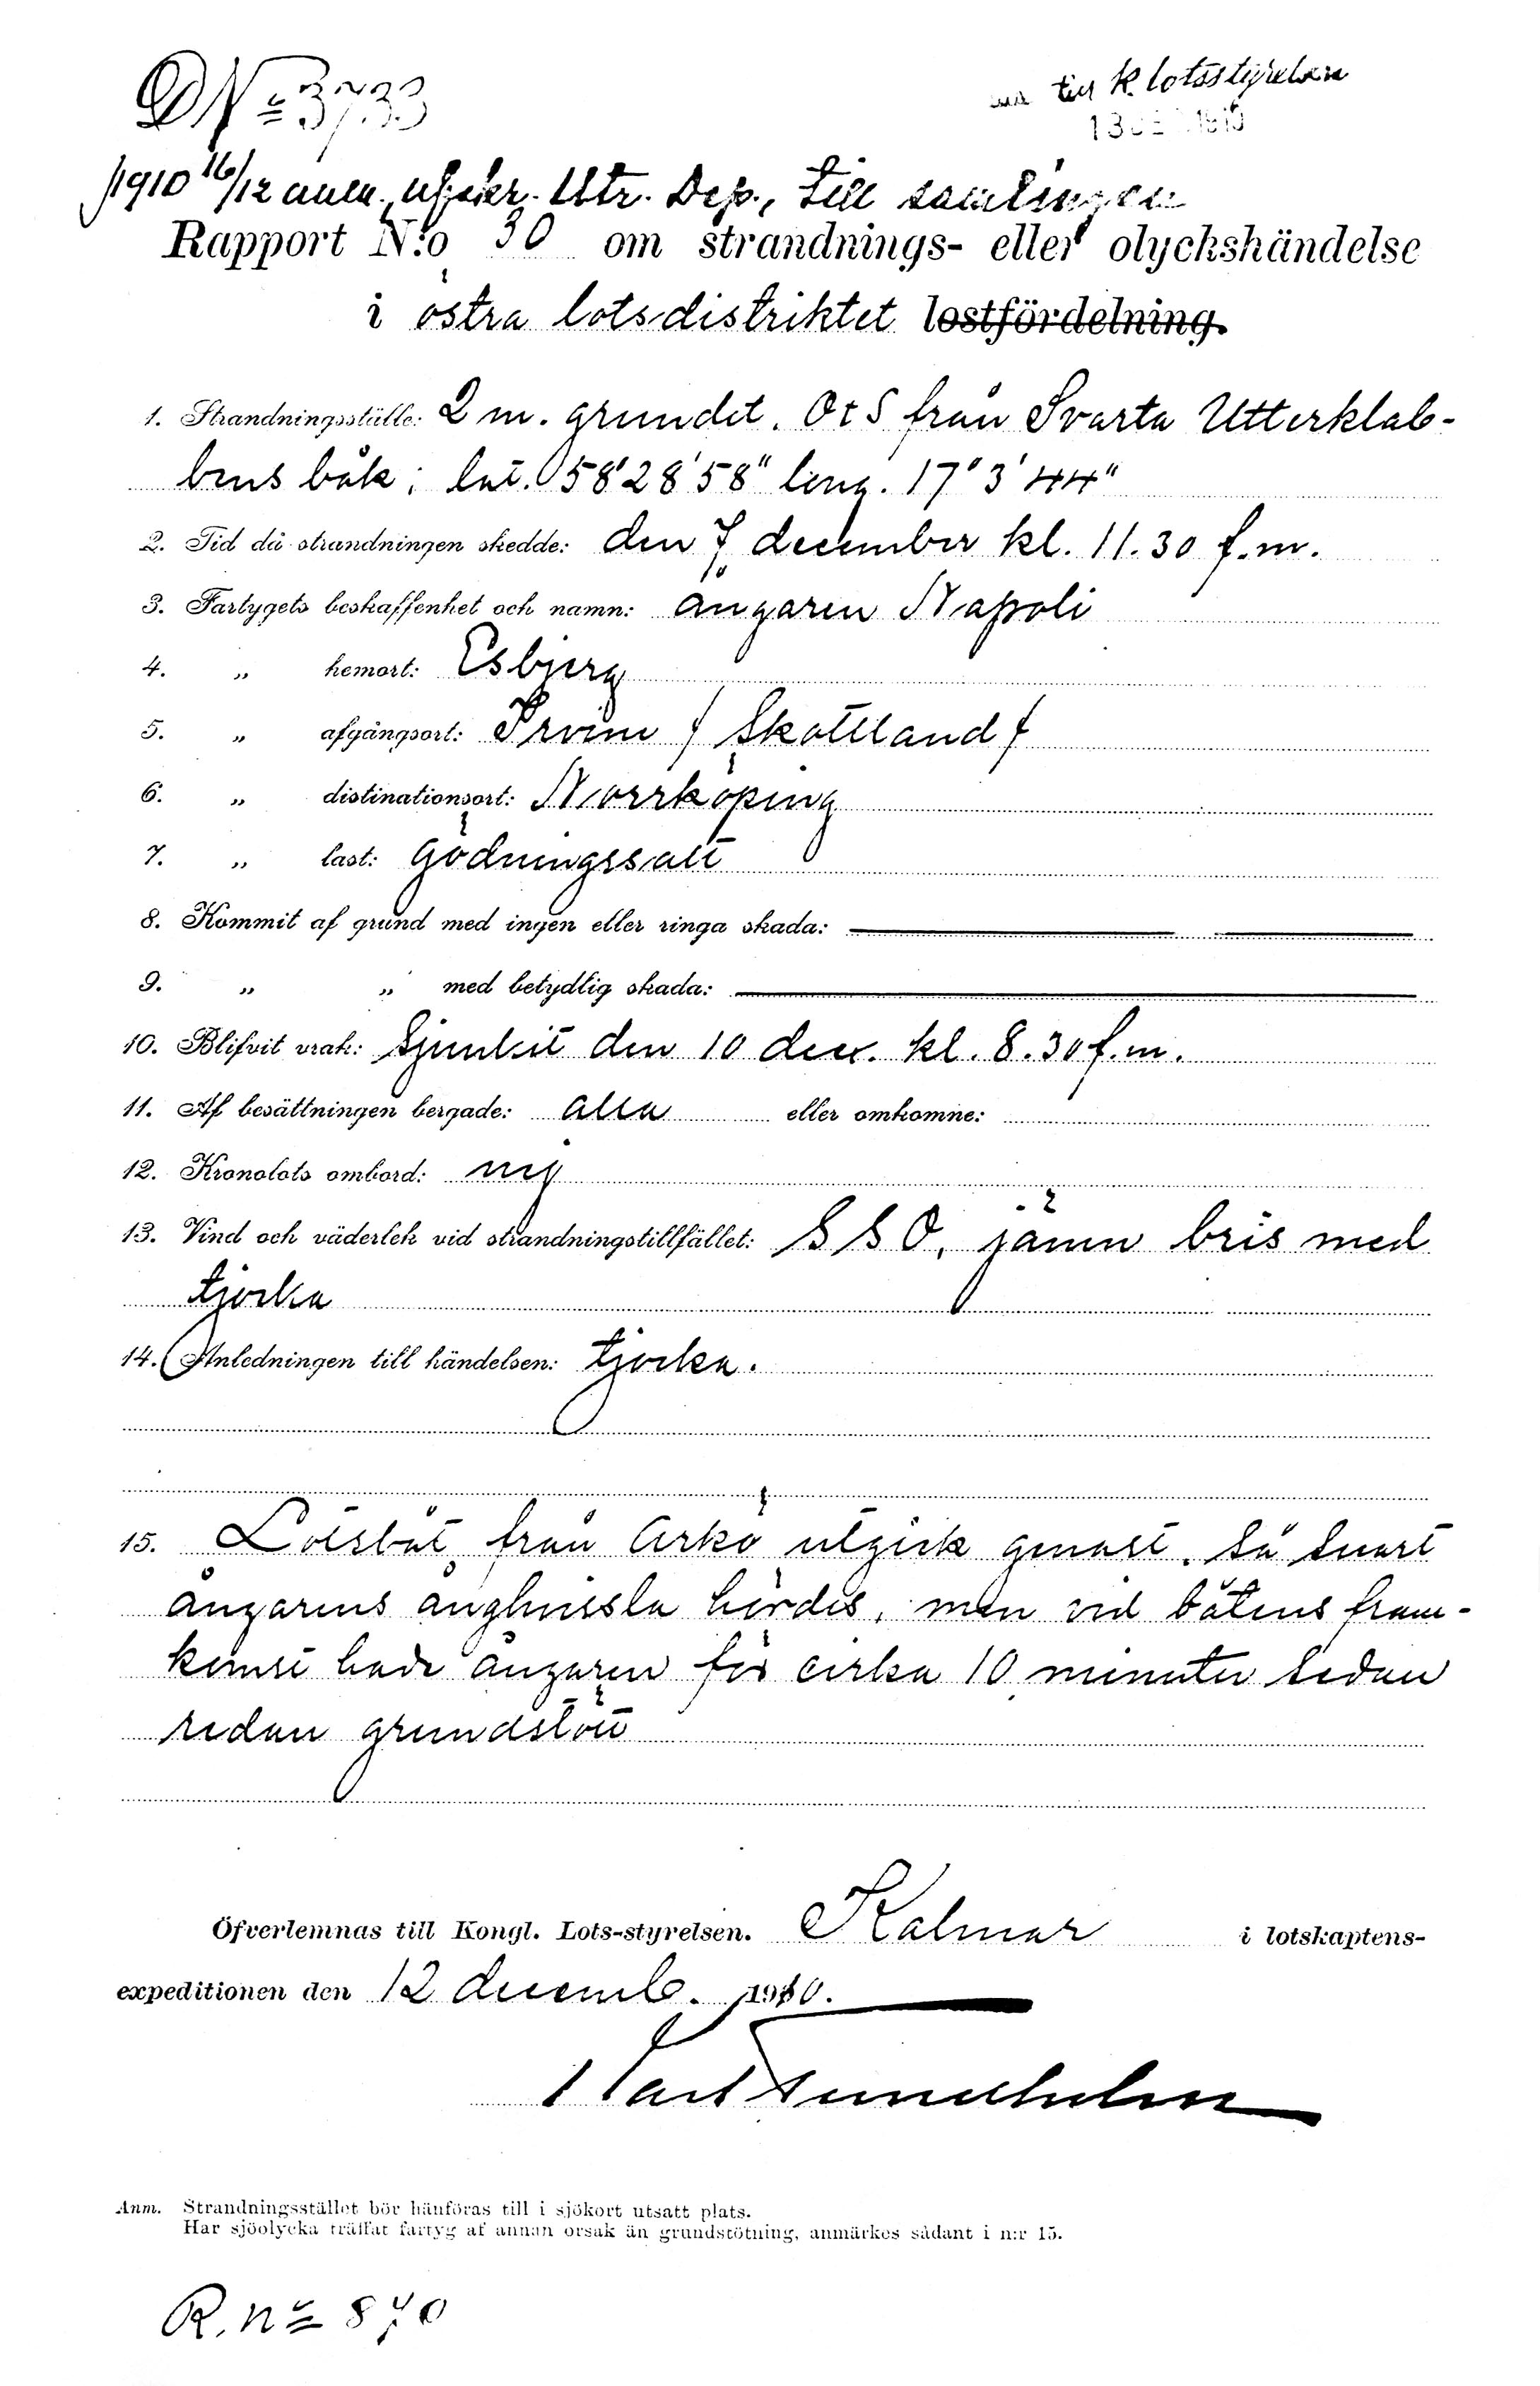 D Nº 3733
till K. lotsstyrelsen
13 DEC 1910
1910 16/12 anm., afskr. Utr. Dep., till samlingen
Rapport N:o 30 om strandnings- eller olyckshändelse
i östra lotsdistriktet lostfördelning.
1. Strandningsställe: 2 m. grundet. OtS från Svarta Utterklab-
bens båk; lat. 58°28'58" long. 17°3'44"
2. Tid då strandningen skedde: den 7 december kl. 11.30 f.m.
3. Fartygets beskaffenhet och namn: ångaren Napoli
4. „ hemort: Esbjerg
5. „ afgångsort: Irvine / Skottland /
6. „ distinationsort: Norrköping
7. „ last: gödningssalt
8. Kommit af grund med ingen eller ringa skada:
9. „ „ med betydlig skada:
10. Blifvit vrak: Sjunkit den 10 dec. kl. 8.30 f.m.
11. Af besättningen bergade: alla eller omkomne:
12. Kronolots ombord: nej
13. Vind och väderlek vid strandningstillfället: SSO, jämn bris med
tjocka
14. Anledningen till händelsen: tjocka.
15. Lotsbåt från Arkö utgick genast, så snart
ångarens ånghvissla hördes, men vid båtens fram-
komst hade ångaren för cirka 10 minuter sedan
redan grundstött
Öfverlemnas till Kongl. Lots-styrelsen. Kalmar i lotskaptens-
expeditionen den 12 decemb. 1910.
Anm. Strandningsstället bör hänföras till i sjökort utsatt plats.
Har sjöolycka träffat fartyg af annan orsak än grundstötning, anmärkes sådant i n:r 15.
R. nº 870